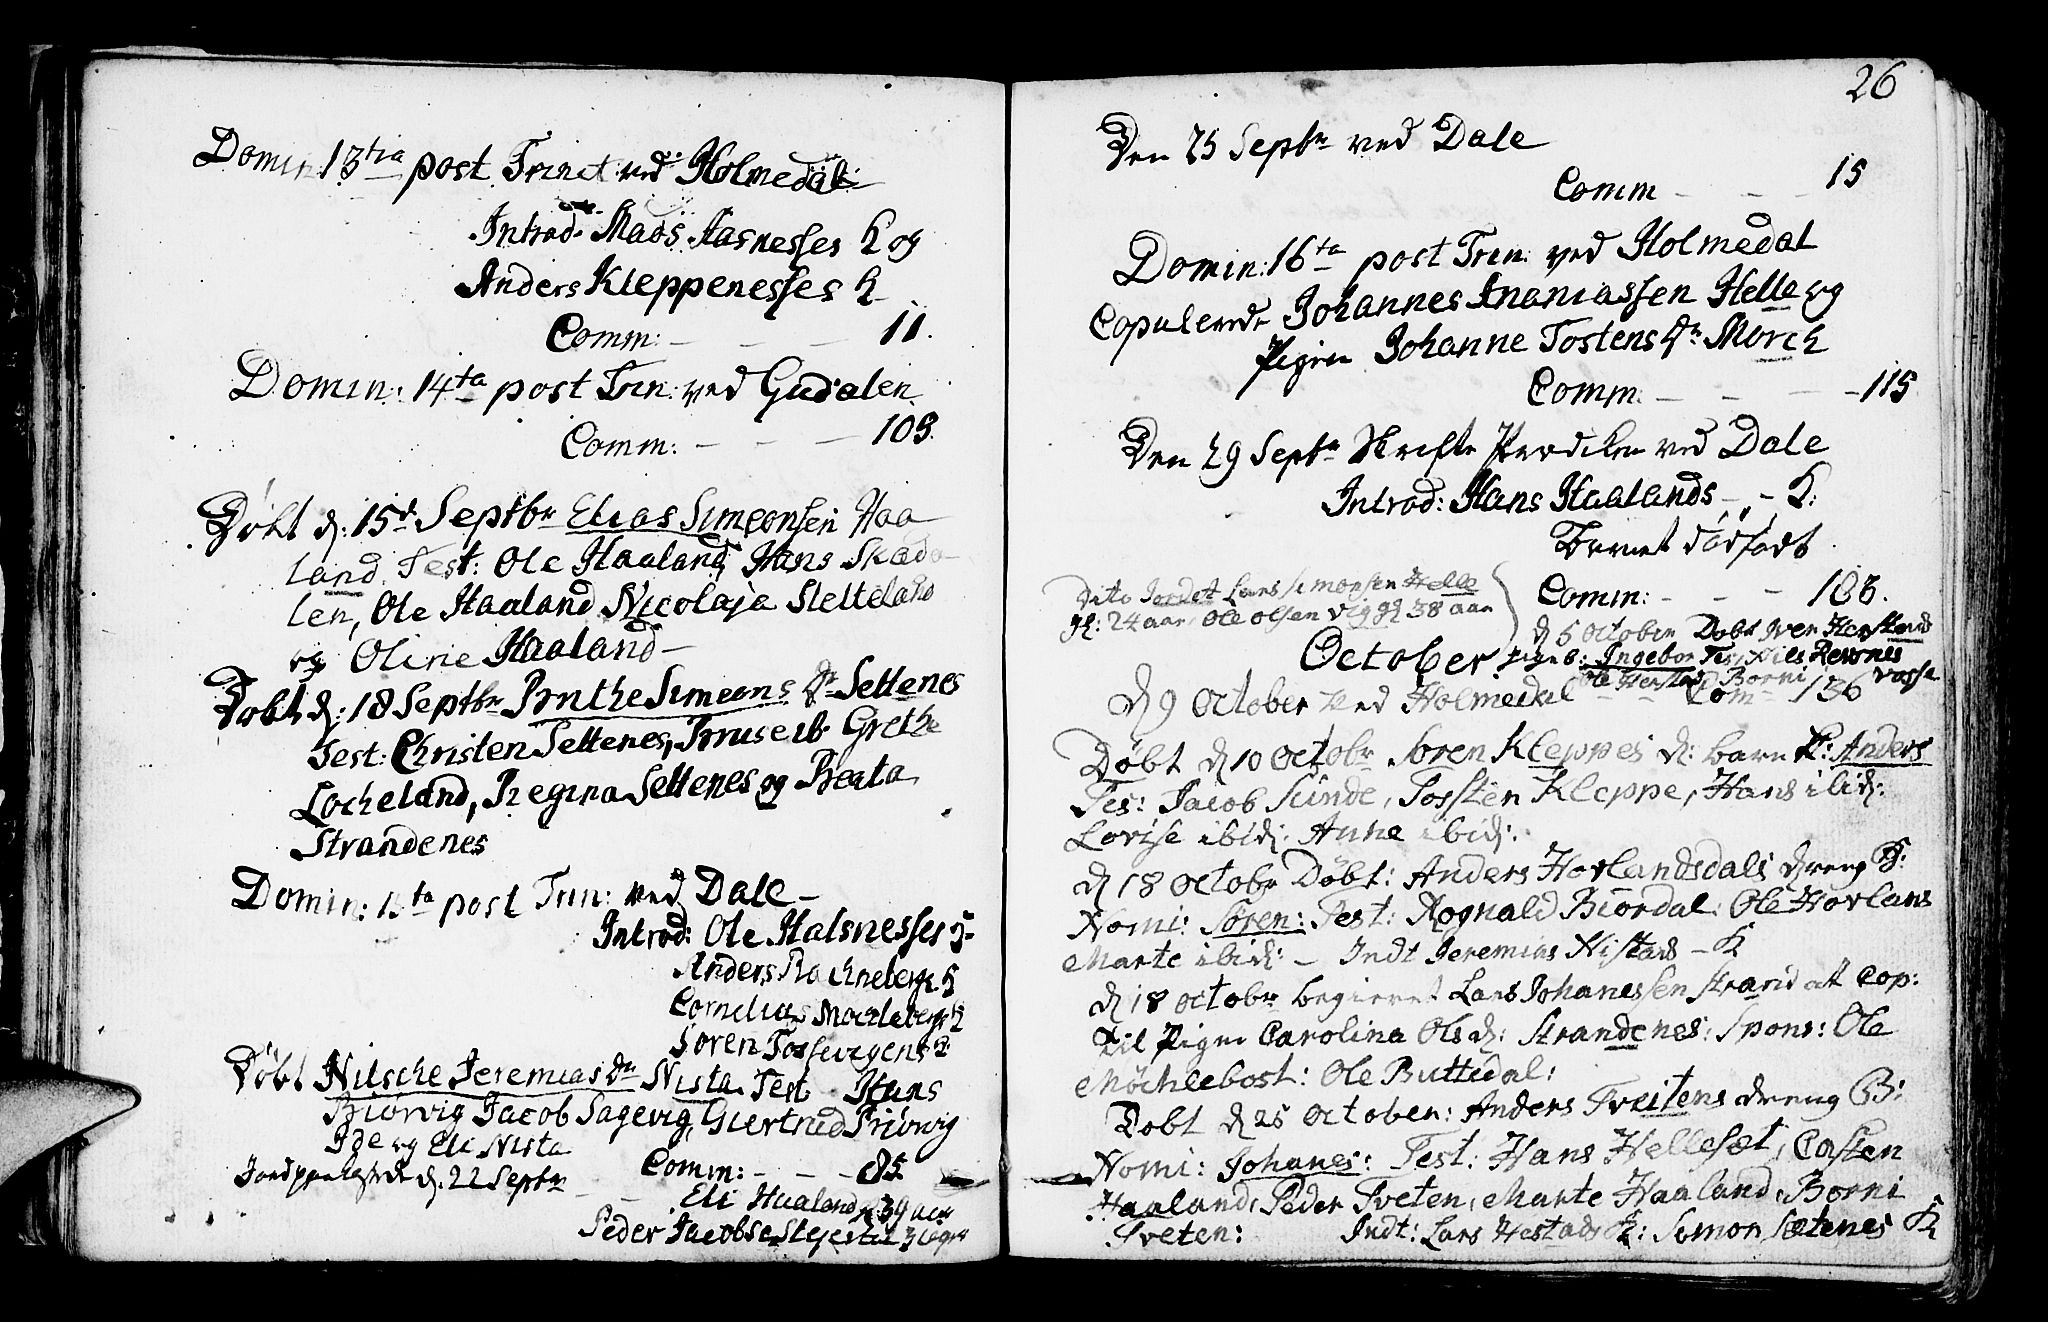 Domin 13tia post Trinit ved Holmedal
Introd: Mads Aasnesses K og
Anders Kleppenesses K
Comm: - - - 11.
Domin: 14ta post Trin: ved Gudalen
Comm: - - - 103.
Døbt d: 15d Septbr Elias Simeonsen Haa
land Test: Ole Haaland, Hans Skada
len, Ole Haaland Nicolaja Sletteland
og Oline Haaland -
Døbt d: 18 Septbr Brithe Simeons Dr Settenes
Test: Christen Settenes, Bruse ib Grethe
Locheland, Regina Settenes og Beata
Strandenes
Domin: 15ta post Trin: ved Dale -
Introd: Ole Halsnesses K
Anders Rachneberg K
Cornelius Mochleberg K
Søren Tossevigens K
Døbt Nilsche Jeremias Dr Nista Test Hans
Biørvig Jacob Sagevig, Giertrud Biørvig
Ide og Eli Nista
Comm: - - - 85
Jordpaakastet d. 22 Septbr - -
Eli Haaland 39 aar
Peder Jacobse
26
Den 25 Septbr ved Dale
Comm - - - 15
Domin: 16ta post Trin: ved Holmedal
Copulerede Johannes Ananiassen Helle og
Pigen Johanne Tostens Dr Morch
Comm: - - - 115
Den 29 Septbr Skrifte Prædiken ved Dale
Introd: Hans Haalands - - K:
Barnet dødfødt
Comm: - - - 108.
Dito Jordet Lars Simonsen Helle
gl: 24 aar Ole Olsen Vig gl 38 aar
d 5 October Døbt Iver Herstads
October
pigeb: Ingebor Tes: Nils
Ole Herstad, Borni
d 9 October ved Holmedal - - Com - 136
Døbt d 10 Octobr Søren Kleppes d: barn K: Anders
Tes: Jacob Sunde, Tossten Kleppe, Hans ibid:
Lovise ibid: Anne ibid:
d 18 Octobr Døbt: Anders Hovlandsdals dreng B:
Nomi: Søren: Test: Rognald Biordal: Ole Hovlans
Marte ibid: - Indt Jeremias Nistads - K
d 18 Octobr begieret Lars Johanessen Strand at Cop:
til Pigen Carolina Olsd: Strandenes: Spons: Ole
Møchlebost: Ole Buttedal:
Døbt d 25 October: Anders Tveitens dreng B:
Nomi: Johanes: Test: Hans Hellesæt, Casten
Haaland, Peder Tveten, Marte Haaland, Borni
Tveten: Indt: Lars Hestads K: Simon Sætenes K